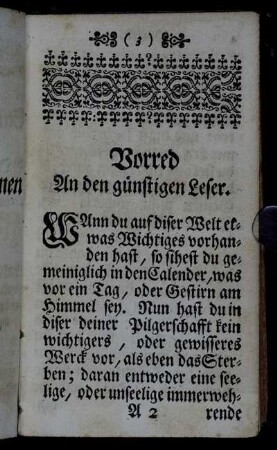 (3)
Vorred
An den günstigen Leser.
WAnn du auf diser Welt et-
was Wichtiges vorhan-
den hast, so sihest du ge-
meiniglich in den Calender, was
vor ein Tag, oder Gestirn am
Himmel sey. Nun hast du in
diser deiner Pilgerschafft kein
wichtigers, oder gewisseres
Werck vor, als eben das Ster-
ben; daran entweder eine see-
lige, oder unseelige immerweh-
A 2 rende
nen